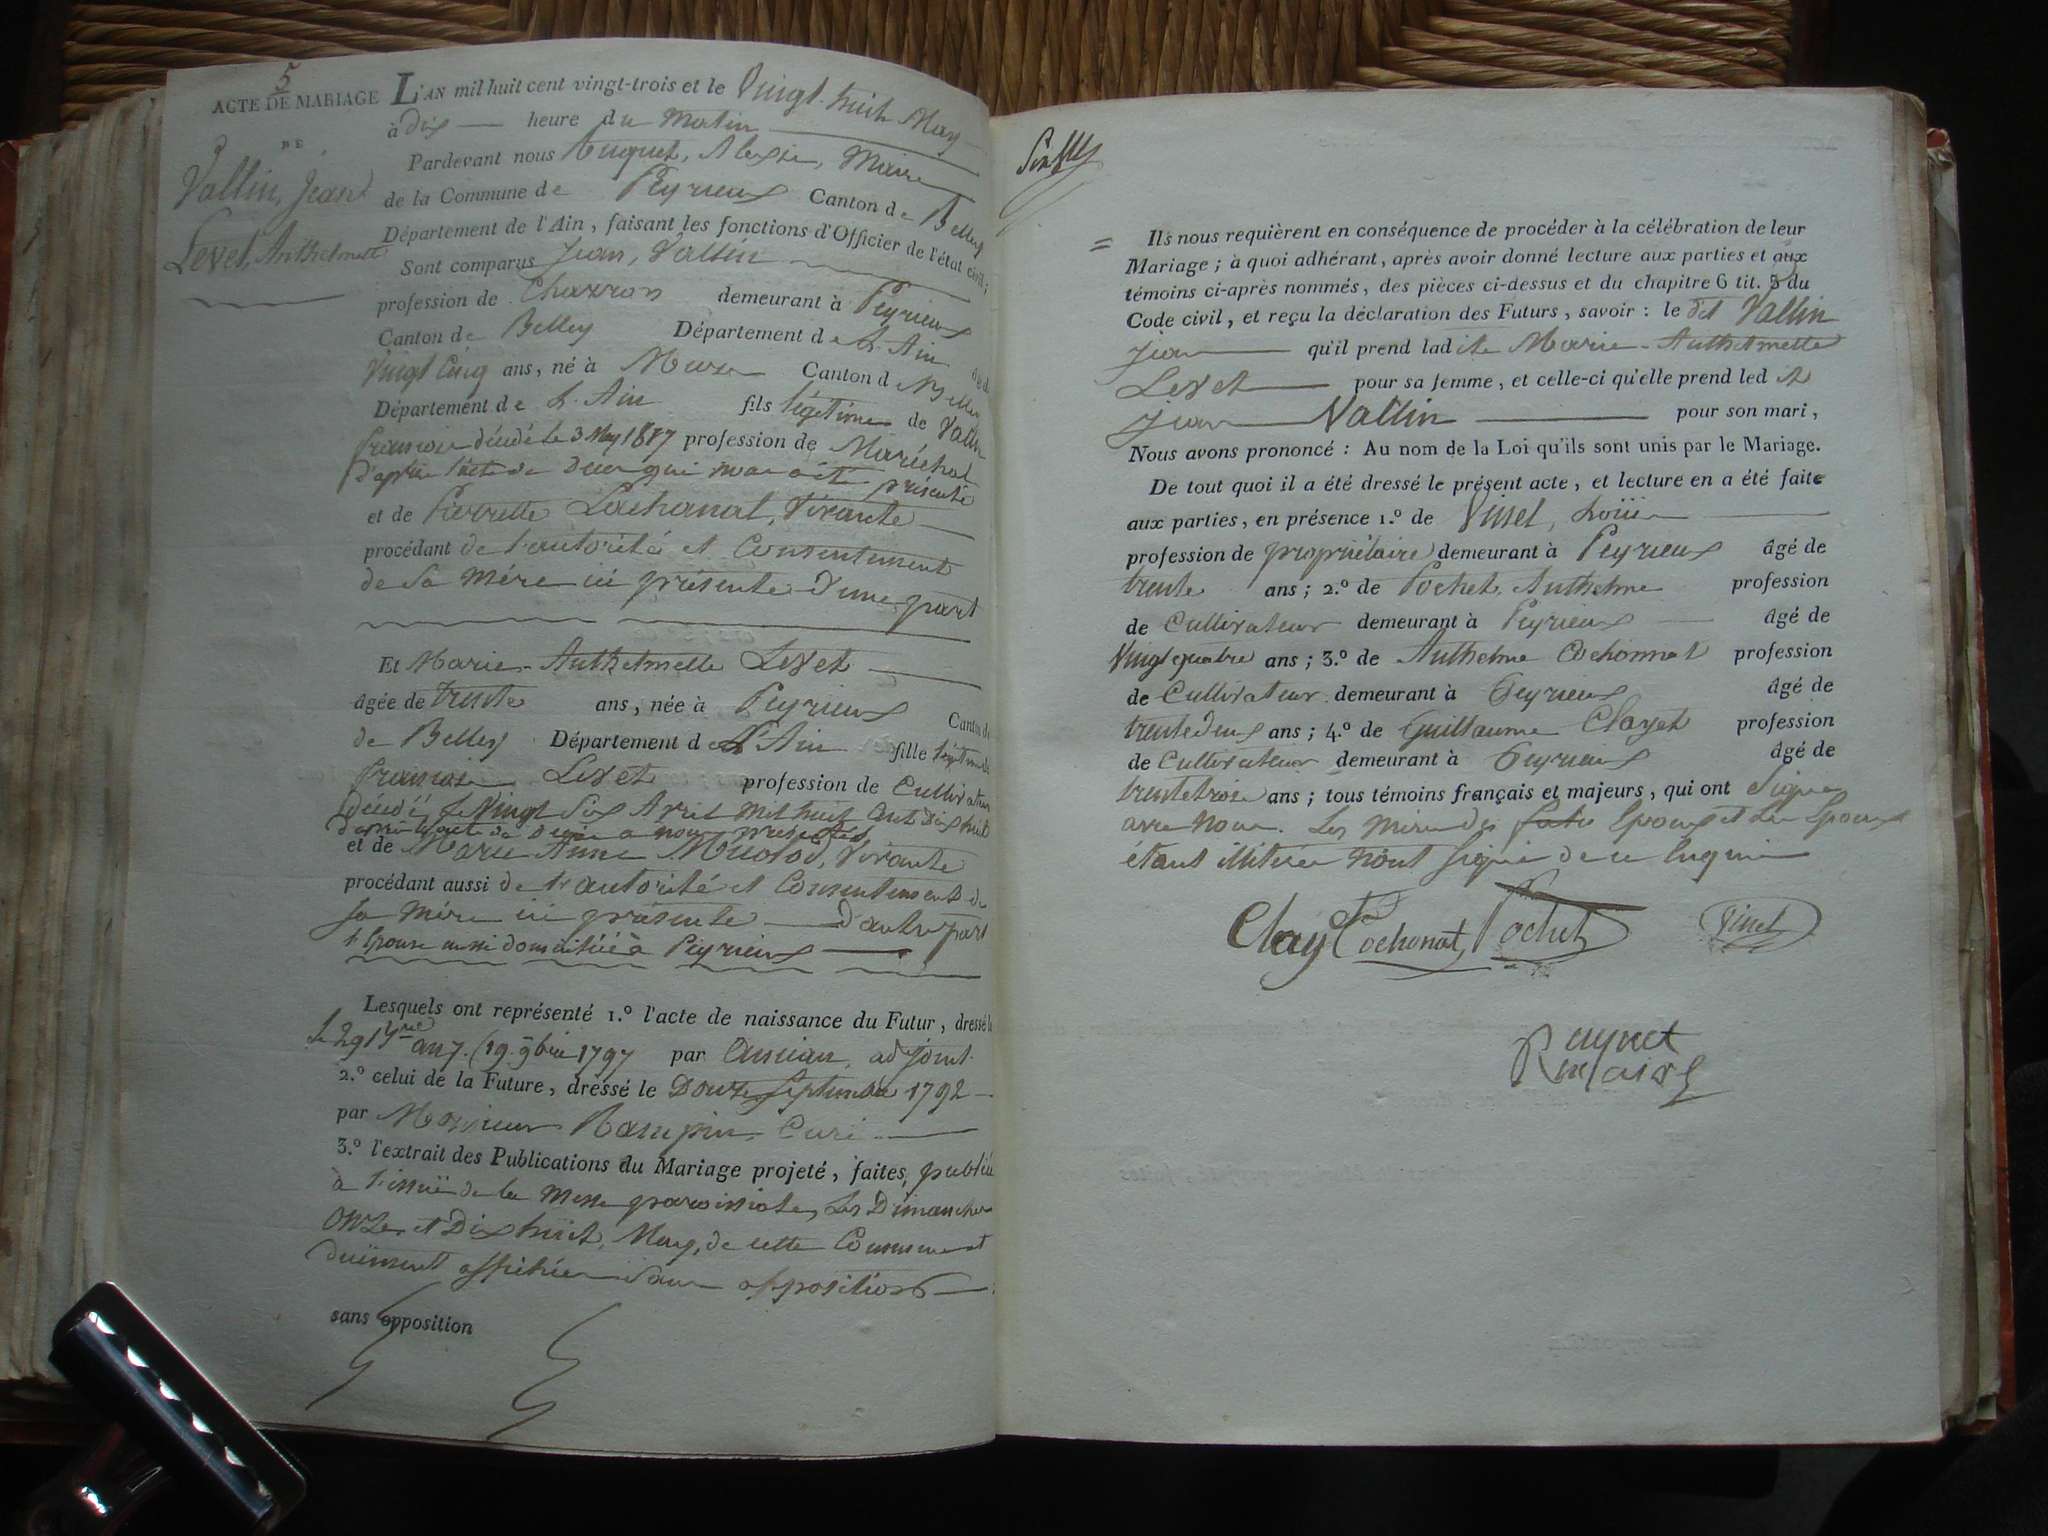 5
ACTE DE MARIAGE
DE
Vallin, Jean
Levet, Anthelmette
L'AN mil huit cent vingt-trois et le Vingt-huit May
à dix heure du Matin
Pardevant nous Alexis, Maire
de la Commune de Peyrieux Canton de Belley
Département de l'Ain, faisant les fonctions d'Officier de l'état civil;
Sont comparus Jean, Vallin
profession de Charron demeurant à Peyrieux
Canton de Belley Département de L'Ain âgé de
Vingt Cinq ans, né à Canton de Belley
Département de L'Ain fils légitime de Vallin
francois décédé le 3 May 1817 profession de Maréchal
d'après l'acte de décès qui nous a été présenté
et de Pierrette Lachanal, Vivante
procédant de l'autorité et Consentement
de Sa Mère ici présente D'une part
Et Marie-Anthelmette Levet
âgée de trente ans, née à Peyrieux Canton de
de Belley Département de L'Ain fille légitime de
francois Levet profession de Cultivateur
décédé, le Vingt Six Avril Mil huit Cent Dix huit
d'après l'acte de Décès a nous présenté
et de Marie Anne Vivante
procédant aussi de l'autorité et Consentement de
Sa Mère ici présente D'autre part
l'Epouse aussi domiciliée à Peyrieux
Lesquels ont représenté 1.º l'acte de naissance du Futur, dressé le
le 29 an 7. (19. 9bre 1797 par adjoint.
2.º celui de la Future, dressé le Douze Septembre 1792
par Monsieur Curé
3.º l'extrait des Publications du Mariage projeté, faites, publiées
à l'issuë de la Messe paroissiale, Les Dimanches
Onze et Dix huit May, de cette Commune et
duëment affichées Sans opposition
sans opposition
Ils nous requièrent en conséquence de procéder à la célébration de leur
Mariage; à quoi adhérant, après avoir donné lecture aux parties et aux
témoins ci-après nommés, des pièces ci-dessus et du chapitre 6 tit. 5 du
Code civil, et reçu la déclaration des Futurs, savoir: le dit Vallin
Jean qu'il prend ladite Marie-Anthelmette
Levet pour sa femme, et celle-ci qu'elle prend ledit
Jean Vallin pour son mari,
Nous avons prononcé: Au nom de la Loi qu'ils sont unis par le Mariage.
De tout quoi il a été dressé le présent acte, et lecture en a été faite
aux parties, en présence 1.º de Vinet, Loüis
profession de propriétaire demeurant à Peyrieux âgé de
trente ans; 2.º de Pochet, Anthelme profession
de Cultivateur demeurant à Peyrieux âgé de
Vingt quatre ans; 3.º de Anthelme Cochonnat profession
de Cultivateur demeurant à Peyrieux âgé de
trente deux ans; 4.º de Guillaume Clayet profession
de Cultivateur demeurant à Peyrieux âgé de
trente trois ans; tous témoins français et majeurs, qui ont Signé
avec Nous. Les Mères des Epoux et Les Epoux
étant illitérés n'ont Signé de ce Enquis
Clayet Cochonat Pochet Vinet
Maire